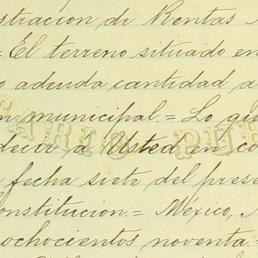 stracion de Rentas
= El terreno situado en
o adeuda cantidad a
n municipal. = Lo qu
decir a Usted en co
fecha siete del prese
onstitucion. = Mexico,
ochocientos noventa. =